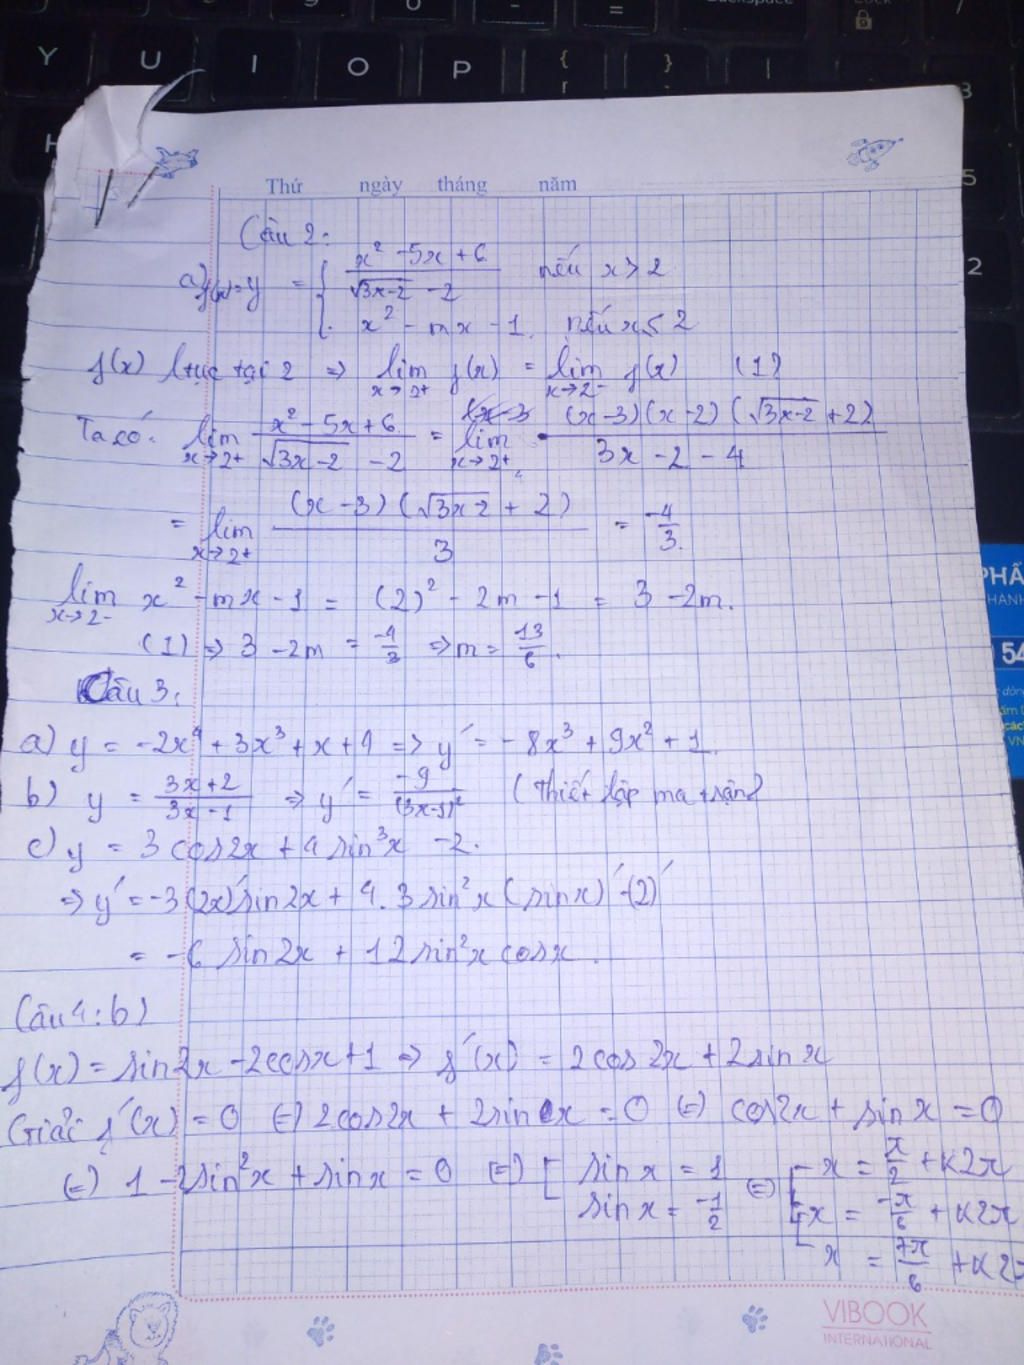 Y U I O P { }
Thứ ngày tháng năm
Câu 2:
a) f(x) = y = { x² - 5x + 6 / √3x-2 - 2 nếu x > 2
x² - mx - 1 nếu x ≤ 2
f(x) ltục tại 2 => lim x→2+ f(x) = lim x→2- f(x) (1)
Ta có: lim x→2+ x² - 5x + 6 / √3x-2 - 2 = lim x→2+ (x-3)(x-2)(√3x-2 + 2) / 3x - 2 - 4
= lim x→2+ (x-3)(√3x-2 + 2) / 3 = -4/3.
lim x→2- x² - mx - 1 = (2)² - 2m - 1 = 3 - 2m.
(1) => 3 - 2m = -4/3 => m = 13/6.
Câu 3:
a) y = -2x⁴ + 3x³ + x + 4 => y' = -8x³ + 9x² + 1.
b) y = 3x+2 / 3x-1 => y' = -9 / (3x-1)² (Thiết lập ma trận)
c) y = 3cos2x + 4sin³x - 2.
=> y' = -3(2x)'sin2x + 4.3sin²x(sinx)' - (2)'
= -6 sin2x + 12sin²x cosx.
Câu 4: b)
f(x) = sin2x - 2cosx + 1 => f'(x) = 2cos2x + 2sinx
Giải f'(x) = 0 (=) 2cos2x + 2sinx = 0 (=) cos2x + sinx = 0
(=) 1 - 2sin²x + sinx = 0 (=) [ sinx = 1 (=) [ x = π/2 + k2π
sinx = -1/2 x = -π/6 + k2π
x = 7π/6 + k2π
VIBOOK
INTERNATIONAL